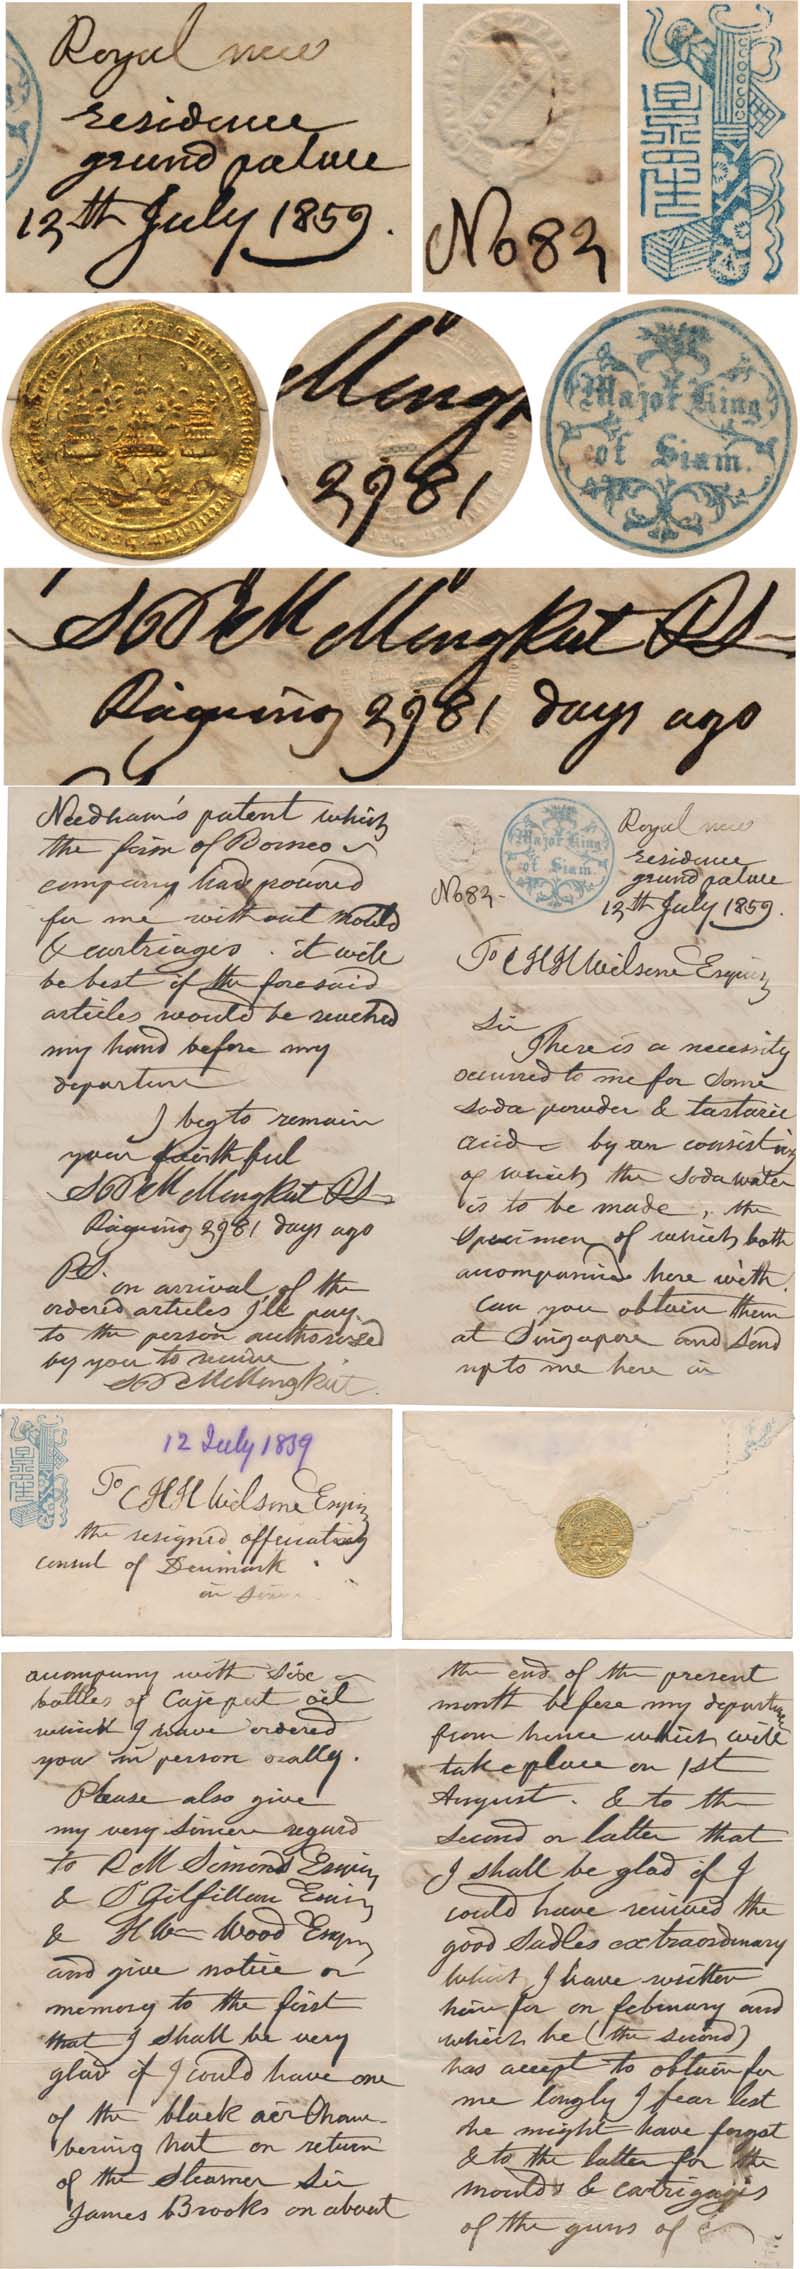 Royal new
residence
grand palace
12th July 1859.
No 82
Mungk
2981
Major King
of Siam.
SPPM Mongkut RS
Raigning 2981 days ago
Needham's patent which
the firm of Borneo
company had powred
for me without mould
& cartriages. it will
be best if the foresaid
articles would be reached
my hand before my
departure
I beg to remain
your faithful
SPPM Mongkut RS
Raigning 2981 days ago
PS. on arrival of the
ordered articles I'll pay
to the person authorised
by you to receive
SPPM Mongkut
No 82-
Major King
of Siam.
Royal new
residence
grand palace
12th July 1859.
To C H H Wilsone Esquiry
Sir
There is a necessity
occurred to me for some
soda powder & tartaric
acid by an consisting
of which the soda water
is to be made, the
specimen of which both
accompanied here with.
Can you obtain them
at Singapore and send
up to me here in
12 July 1859
To C H H Wilsone Esquiry
the resigned officiating
consul of Denmark
in
accompany with six
bottles of Cajeput oil
which I have ordered
you in person orally.
Please also give
my very sincere regard
to R M Simond Esquiry
& S Gilfillan Esquiry
& H Wm Wood Esquiry
and give notice or
memory to the first
that I shall be very
glad if I could have one
of the black aër Cham-
bering hat on return
of the Steamer Sir
James Brooks on about
the end of the present
month before my departure
from hence which will
take place on 1st
August. & to the
second or latter that
I shall be glad if I
could have received the
good sadles extraordinary
which I have written
him for on february and
which he (the second)
has accept to obtain for
me longly I fear lest
he might have forgot
& to the latter for the
moulds & cartrigages
of the guns of